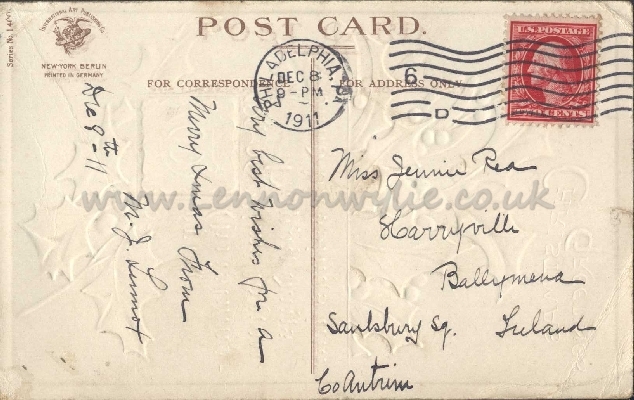 International Art Publishing Co
NEW-YORK BERLIN
PRINTED IN GERMANY
POST CARD.
FOR CORRESPONDENCE
FOR ADDRESS ONLY
PHILADELPHIA, PA
DEC 8
9-PM
1911
6
D
U.S. POSTAGE
CENTS
Dec 8th - 11
Very best wishes for a
Merry Xmas From
M. J.
Miss Jennie Rea
Harryville
Ballymena
Saulsbury Sq. Ireland
Co Antrim
www.lennonwylie.co.uk